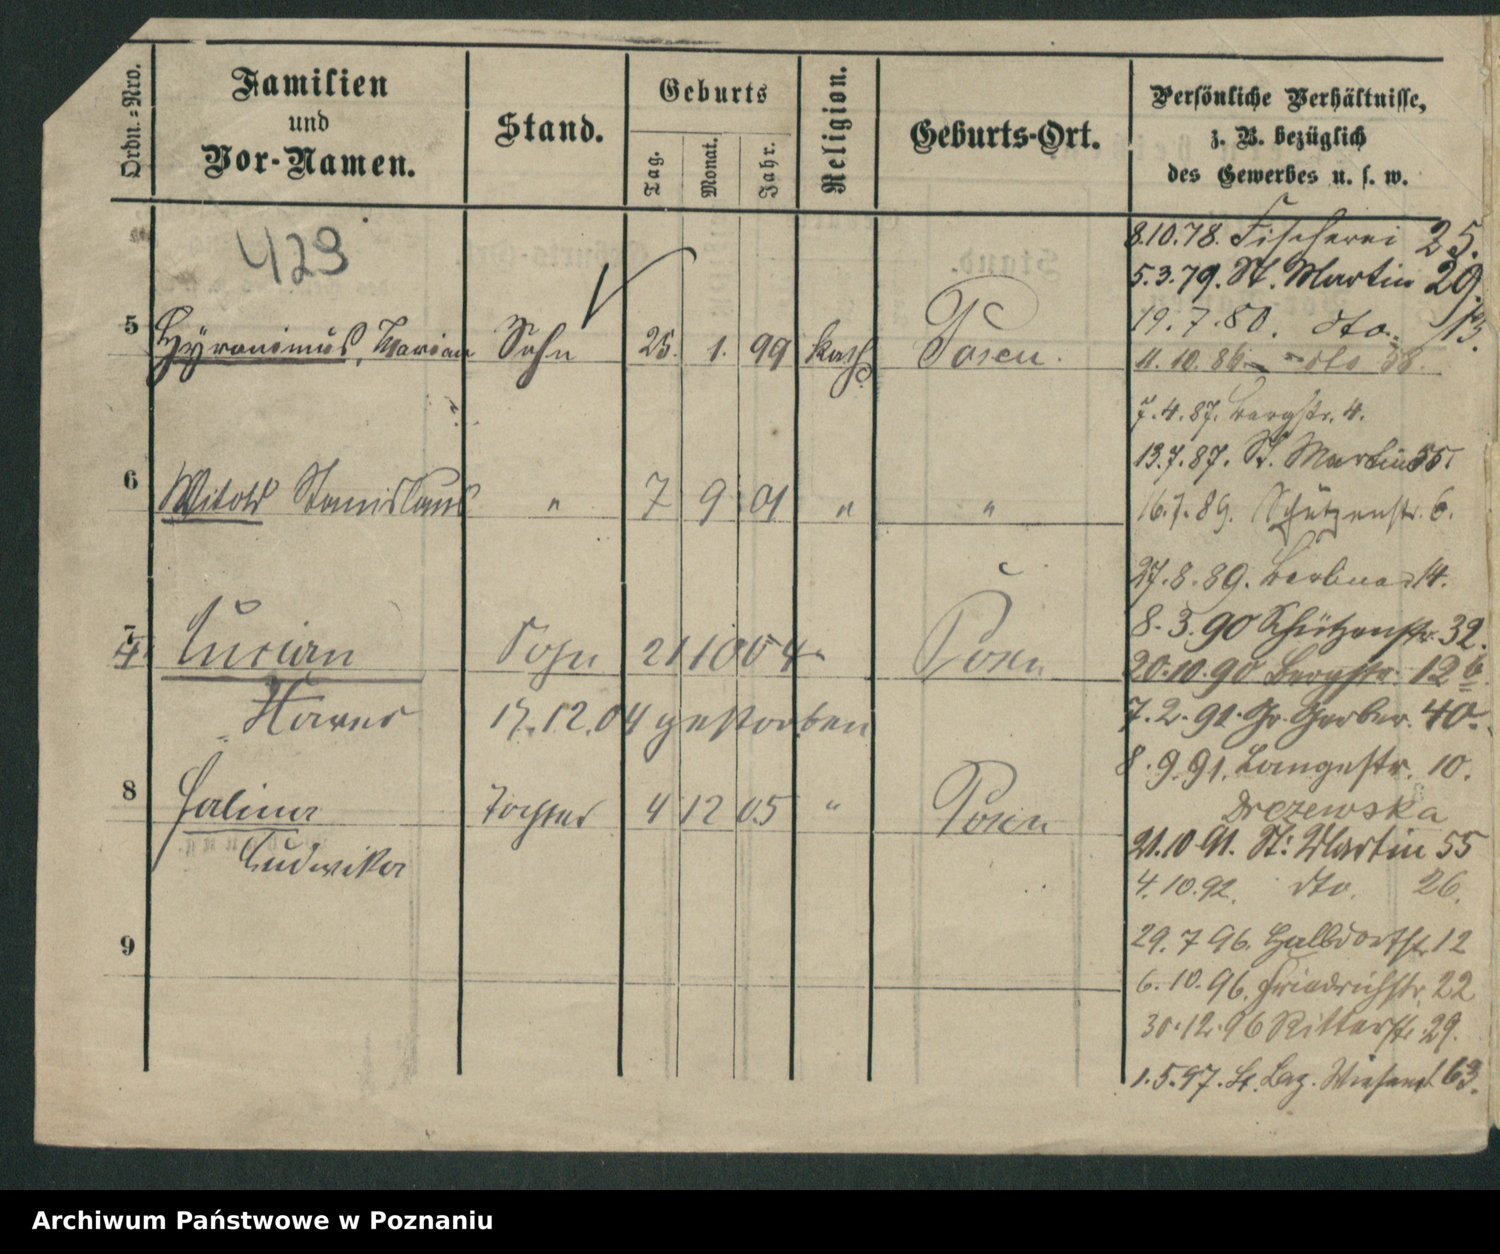 Ordn.-Nro.
Familien
und
Vor-Namen.
Stand.
Geburts
Tag.
Monat.
Jahr.
Religion.
Geburts-Ort.
Persönliche Verhältnisse,
z. B. bezüglich
des Gewerbes u. s. w.
423
5 Hyronimus, Marian Sohn 25. 1. 99 kath Posen.
6 Witold Stanislaus " 7 9 01 " "
7 4 Lucian Sohn 21 10 04 Posen
Xaver 17.12.04 gestorben
8 Halina Tochter 4 12 05 " Posen
Ludwika
9
8.10.78. Fischerei 25.
5.3.79. St. Martin 29.
19.7.80. dto. 13.
11.10.86 dto 58.
7.4.87. Bergstr. 4.
13.7.87. St. Martin 55
16.7.89. Schützenstr. 6.
27.8.89. 14.
8.3.90 Schützenstr. 32.
20.10.90 Bergstr. 12 b
7.2.91. Gr. Gerber. 40.
8.9.91. Langestr. 10.
Drezewska
21.10.91. St. Martin 55
4.10.92. dto. 26.
29.7.96. Halbdorfstr. 12
6.10.96. Friedrichstr. 22
30.12.96 Ritterstr. 29.
1.5.97. St. Laz. 63.
Archiwum Państwowe w Poznaniu